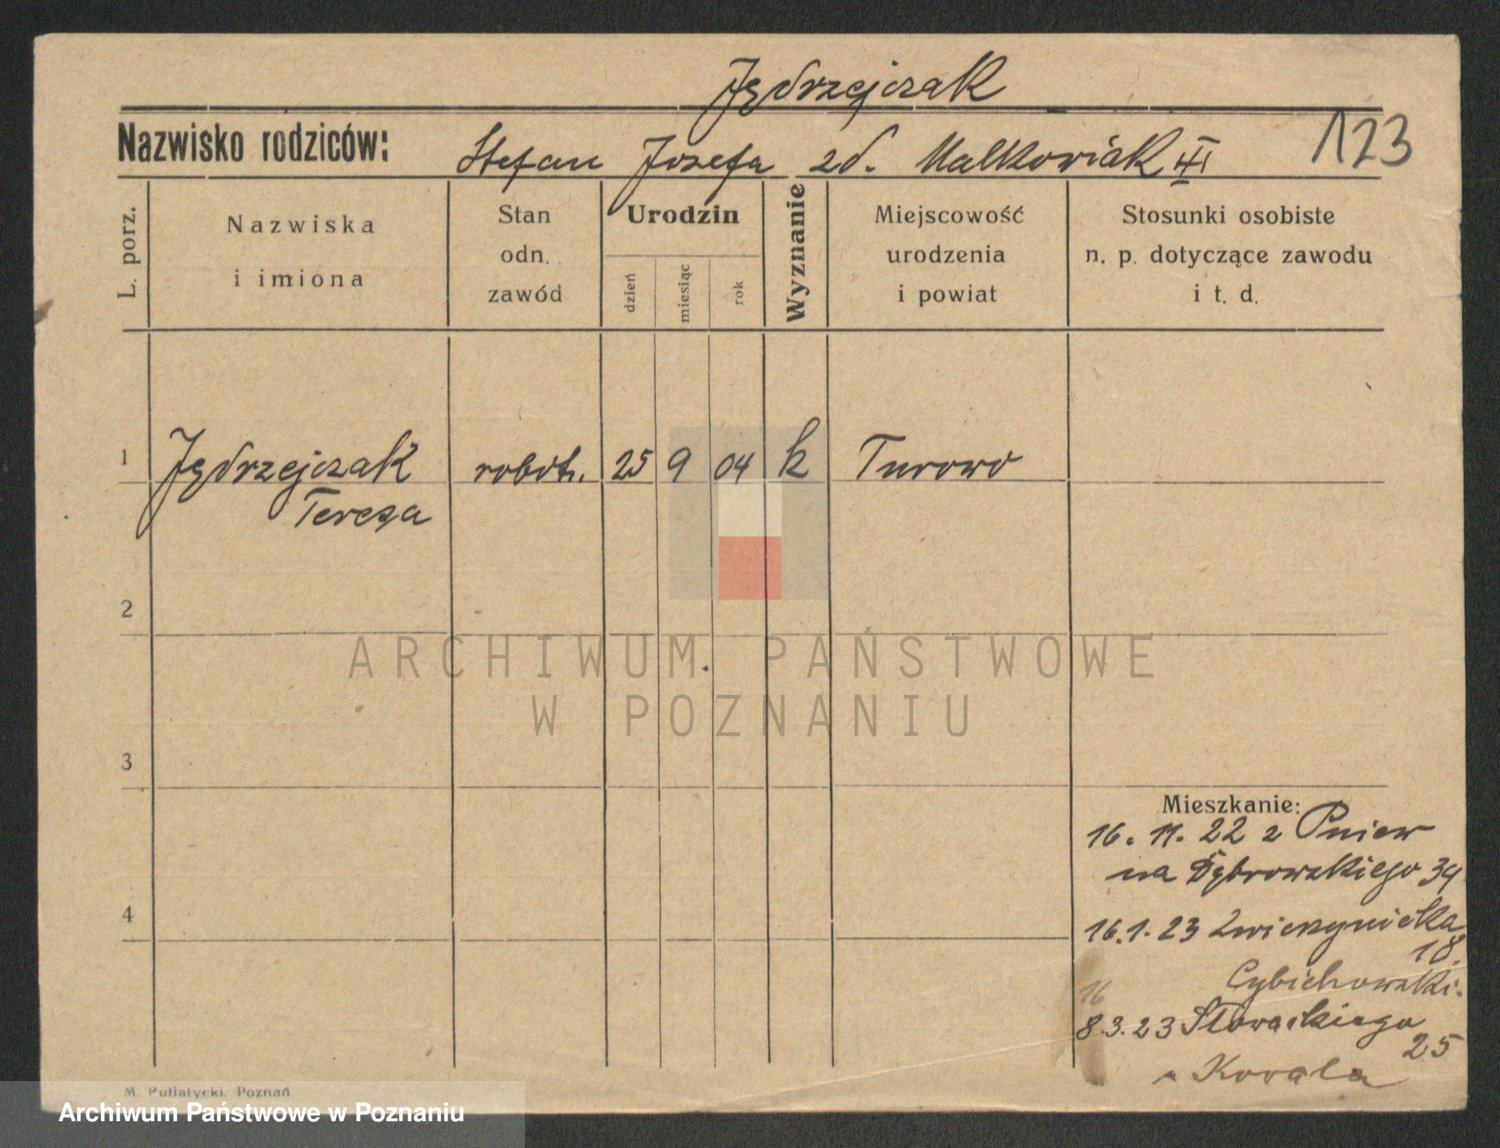 Jędrzejczak
Nazwisko rodziców: Stefan Józefa zd. Małkowiak III 123
L. porz.
Nazwiska
i imiona
Stan
odn.
zawód
Urodzin
dzień
miesiąc
rok
Wyznanie
Miejscowość
urodzenia
i powiat
Stosunki osobiste
n. p. dotyczące zawodu
i t. d.
1 Jędrzejczak robotn. 25 9 04 k Turowo
Teresa
2
ARCHIWUM PAŃSTWOWE
W POZNANIU
3
Mieszkanie:
16. 11. 22 z Pniew
na Dąbrowskiego 34
4
16.1.23 Zwierzyniecka
18.
Cybichowski.
16
8.3.23 Słowackiego
25
u Kowala
M. Putiatycki, Poznań
Archiwum Państwowe w Poznaniu